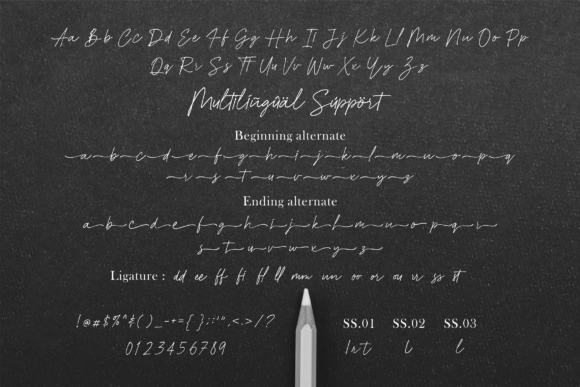 Aa Bb Cc Dd Ee Ff Gg Hh Ii Jj Kk Ll Mm Nn Oo Pp
Qq Rr Ss Tt Uu Vv Ww Xx Yy Zz
Multilingüäl Süppört
Beginning alternate
a-b-c-d-e-f-g-h-i-j-k-l-m-n-o-p-q
-r-s-t-u-v-w-x-y-z
Ending alternate
a-b-c-d-e-f-g-h-i-j-k-l-m-n-o-p-q-r-
s-t-u-v-w-x-y-z-
Ligature : dd ee ff ft fl ll mm nn oo or ou ur ss st
!@#$%^&()_-+={}:;'",<.>/? SS.01 SS.02 SS.03
0123456789 l l